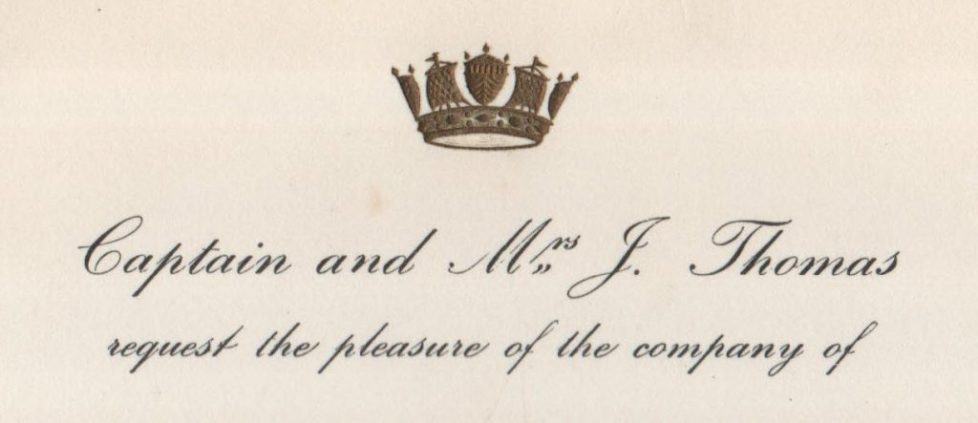 Captain and Mrs J. Thomas
request the pleasure of the company of